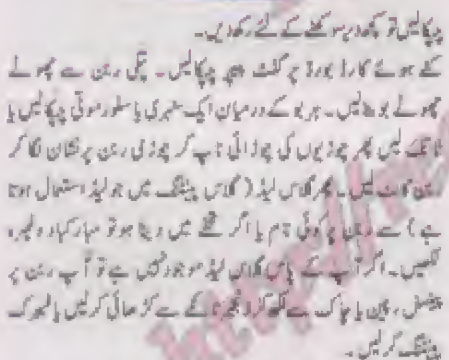 چپکالیں تو کچھ دیر سوکھنے کے لئے رکھ دیں۔
کٹے ہوئے کارڈ بورڈ پر گفٹ پیپر چپکالیں۔ پتلی ربن سے چھوٹے
چھوٹے بو بنالیں۔ ہر بو کے درمیان ایک سنہری یا سلور موتی چپکالیں یا
ٹانک لیں پھر چوڑیوں کی چوڑائی ناپ کر چوڑی ربن پر نشان لگا کر
ربن کاٹ لیں۔ پھر گلاس لیڈ (گلاس پینٹنگ میں جو لیڈ استعمال ہوتا
ہے) سے ربن پر کوئی نام یا اگر تحفے میں دینا ہو تو مبارکباد وغیرہ
لکھیں۔ اگر آپ کے پاس گلاس لیڈ موجود نہیں ہے تو آپ ربن پر
پینسل، پین یا چاک سے لکھ کر دھاگے سے کڑھائی کرلیں یا فیبرک
پینٹنگ کرلیں۔